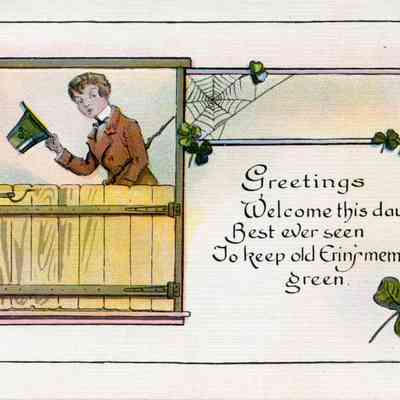 Greetings
Welcome this day
Best ever seen
To keep old Erin's mem
green.